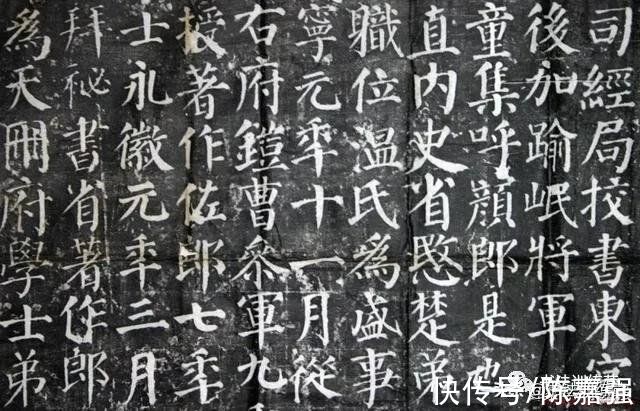 司經局校書東宮
後加踰岷將軍
童集呼顔郎是也
直内史省愍楚弟
職位温氏為盛事
寧元年十一月從
右府鎧曹参軍九
授著作佐郎七年
士永徽元年三月
拜祕書省著作郎
為天冊府學士弟
快传号/陈嘉强